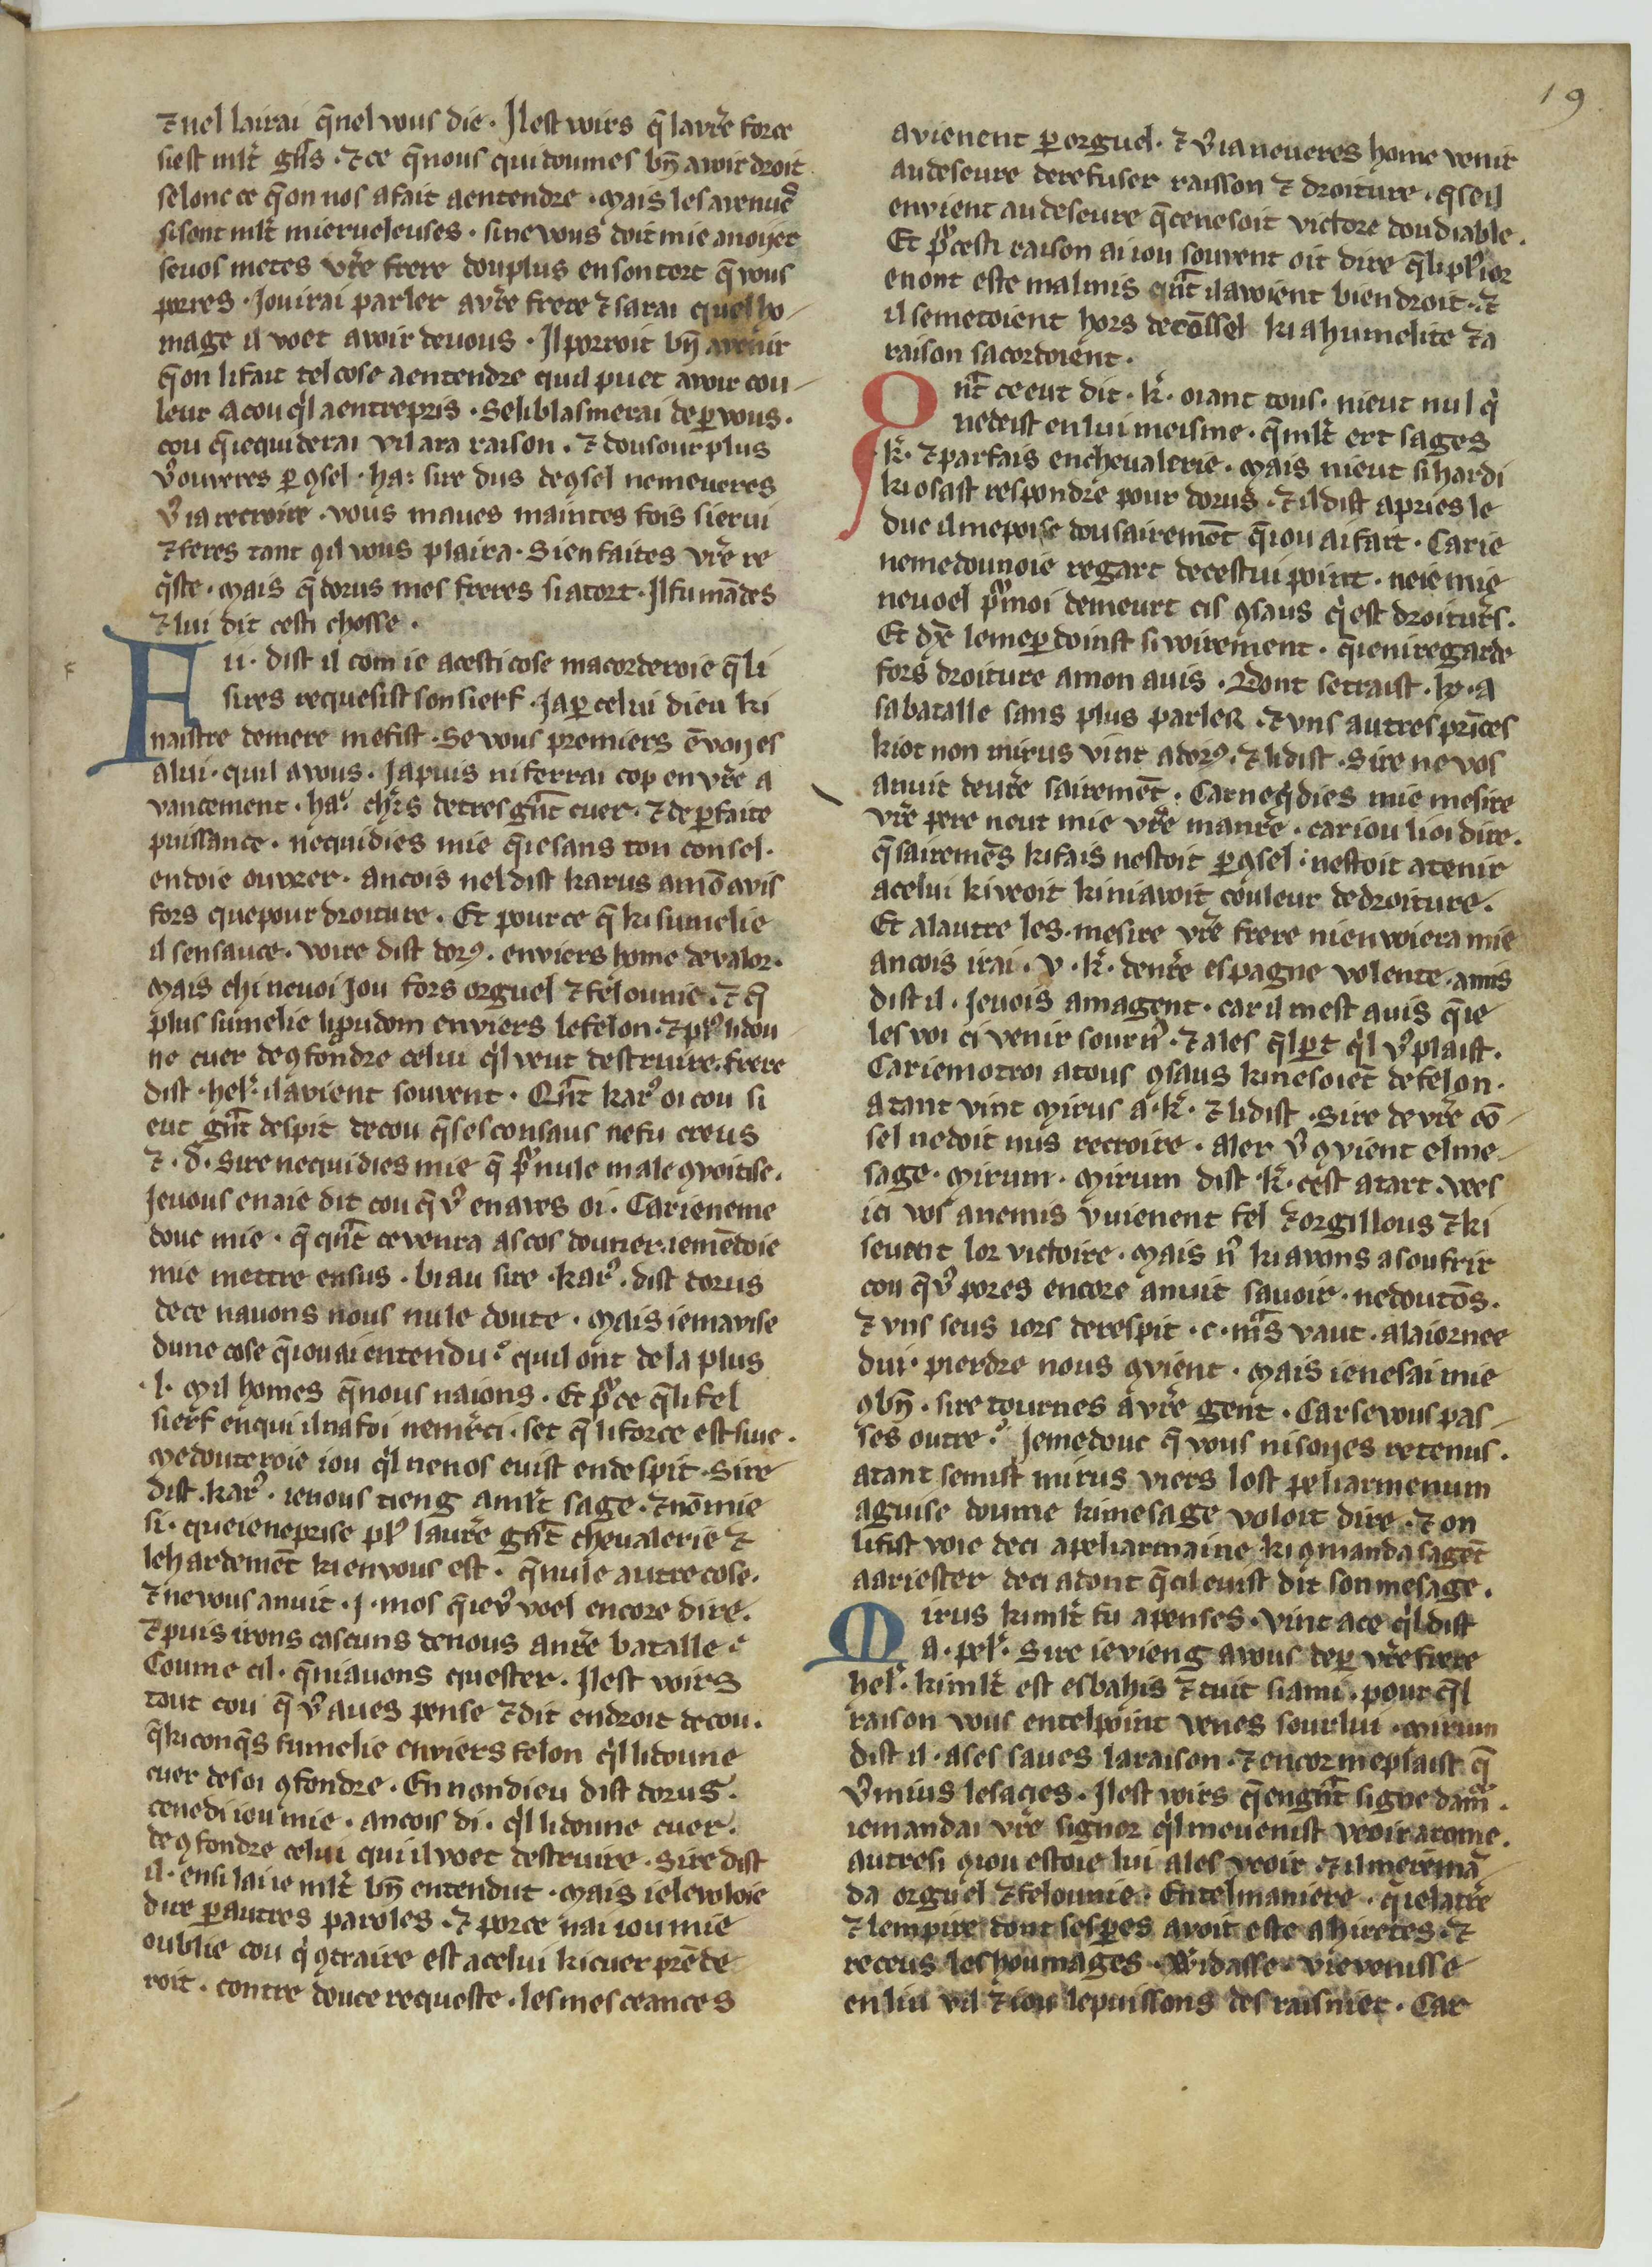 19
⁊ nel lairai q̃nel vous die · Jl est voirs q̃ la vr̃e force
si est ml't gñs · ⁊ ce q̃ nous quidoumes bñ avoir droit
selonc ce q̃ on nos a fait a entendre · Mais les avenues
si sont ml't mierveleuses · si ne vous doit mie anoyer
se vos metes vr̃e frere dou plus en son tort q̃ vous
porres · Jou irai parler a vr̃e frere ⁊ sarai quel ho-
mage il voet avoir de vous · Il porroit bñ avenir
q̃ on li fait tel cose a entendre quil puet avoir cou-
leur a cou q̉l a entrepris · Se li blasmerai de ꝑ vous ·
cou q̃ ie quiderai v il ara raison · ⁊ dou sour plus
v̾ ouverres ꝑ ꝯsel · ha: sire dus de ꝯsel ne me veres
v̾ ia recroire · vous maves maintes fois siervi
⁊ feres tant ꝯ il vous plaira · Si en faites vr̃e re
q̉ste · Mais q̃ dorus mes freres si acort · Il fu mãdes
⁊ lui dit cesti chosse ·
Fu · dist il com ie a cesti cose macorderoie q̃ li
sires requesist son sierf · Ja ꝑ celui dieu ki
naistre de mere me fist · Se vous premiers ẽvoyes
a lui · quil a vous · Ja puis ni ferrai cop en vr̃e a
vancement · ha: chr̃s de tres gñt cuer · ⁊ de ꝑfaite
puissance · ne quidies mie q̃ ie sans ton consel ·
en doie ouvrer · ancois nel dist karus a mõ avis
fors que pour droiture · Et pour ce q̃ ki sumelie
il sensauce · voire dist dorꝰ · enviers home de valor ·
Mais chi ne voi Jou fors orguel ⁊ felounie · ⁊ q̃
plus sumelie li pudom enviers le felon · ⁊ plꝰ li dou
ne cuer de ꝯfondre celui q̉l veut destruire · frere
dist · hel' · il avient souvent · Qñt karꝰ oi cou si
eut gñt despit de cou q̃ ses consaus ne fu creus
⁊ · d̃ · Sire ne quidies mie q̃ pͦ nule male ꝯvoitise ·
Je vous en aie dit cou q̃ v̾ en aves oi · Car ie ne me
douc mie · q̃ qñt ce venra as cos douner · ie mẽ doie
mie mettre ensus · biau sire · karꝰ · dist dorus
de ce navons nous nule doute · Mais ie mavise
dune cose q̃ iou ai entendu · quil ont de la plus
· l · Mil homes q̃ nous naions · Et pͦ ce q̃ li fel
sierf en qui il na foi ne mr̃ci · set q̃ li force est siue ·
Me douteroie iou q̉l ne nos euist en despit · Sire
dist · karꝰ · ie vous tieng a ml't sage · ⁊ nõ mie
si · que ie ne prise plꝰ la vr̃e gñt chevalerie ⁊
le hardemẽt ki en vous est · q̃ nule autre cose ·
⁊ ne vous anuit · J · mos q̃ ie v̾ voel encore dire ·
⁊ puis irons cascuns de nous a nr̃e batalle ·
Coume cil · q̃ ni avons quester · Il est voirs
tout cou q̃ v̾ aves pense ⁊ dit endroit de cou ·
q̃ ki conq̃s sumelie enviers felon q̉l li doune
cuer de soi ꝯfondre · En non dieu dist dorus ·
ce ne di iou mie · ancois di · q̉l li doune cuer ·
de ꝯfondre celui qui il voet destruire · Sire dist
il · ensi lai ie ml't bñ entendut · Mais ie le voloie
dire ꝑ autres paroles · ⁊ por ce nai iou mie
oublie cou q̉ ꝯtraire est a celui ki cuer prẽde
roit · contre douce requeste · les mesceances
avienent ꝑ orguel · ⁊ v̾ ia ne veres home venir
au deseure de refuser raisson ⁊ droiture · q̃ se il
en vient au deseure q̃ ce ne soit victore dou diable ·
Et pͦ cesti raison ai iou souvent oit dire q̃ li plꝰior
en ont este malmis qñt il avoient bien droit · ⁊
il se metoient hors de cõssel ki a humelite ⁊ a
raison sacordoient ·
Qñt ce eut dit · k̾ · oiant tous · nieut nul q̉
ne deist en lui meisme · q̃ ml't ert sages
· k̾ · ⁊ parfais en chevalerie · Mais nieut si hardi
ki osast respondre pour dorus · ⁊ il dist apries le
duc il me poise dou sairemẽt q̃ iou ai fait · Car ie
ne me dounoie regart de cestui point · ne ie mie
ne voel pͦ moi demeurt cis ꝯsaus q̉ est droiturs ·
Et dx̃ le me ꝑdoinst si voirement · q̃ ie ni regarde
fors droiture a mon avis · Dont se traist · k̾ · a
sa batalle sans plus parler · ⁊ vns autres prĩces
ki ot non mirus vint a dorꝰ · ⁊ li dist · Sire ne vos
anuit de vr̃e sairemẽt · Car ne q̉dies mie mesire
vr̃e pere neut mie vr̃e manr̃e · car iou li oi dire ·
q̃ sairemẽs ki fais nestoit ꝑ ꝯsel · nestoit a tenir
a celui ki veoit ki ni avoit couleur de droiture ·
Et a lautre les · mesire vr̃e frere ni envoiera mie
ancois irai · v · k̾ · de vr̃e espagne volente · amis
dist il · Je vois a ma gent · car il mest avis q̃ ie
les voi ci venir sour nͦ · ⁊ ales q̃l ꝑt q̉l v̾ plaist ·
Car ie motroi a tous ꝯsaus ki ne soiẽt de felon ·
A tant vint Mirus a · k̾ · ⁊ li dist · Sire de vr̃e cõ-
sel ne doit nus recroire · Aler v̾ ꝯvient el me-
sage · Mirum · Mirum dist · k̾ · cest a tart · vees
ici vos anemis v vienent fel ⁊ orgillous ⁊ ki
sevent lor victoire · Mais nͦ ki avons a soufrir
cou q̃ v̾ pores encore anuit savoir · ne doutõs ·
⁊ vns seus iors de respit · c · mr̃s vaut · a la iornee
dui · pierdre nous ꝯvient · Mais ie ne sai mie
ꝯbñ · sire tournes a vr̃e gent · Car se vous pas-
ses outre · Je me douc q̃ vous ni soyes retenus ·
atant semist mirus viers lost peliarmenum
a guise doume ki mesage voloit dire · ⁊ on
li fist voie deci a peliarmaine ki ꝯmanda sa gẽt
a ariester deci a dont q̃ cil euist dit son mesage ·
Mirus ki ml't fu apenses · vint a ce q̉l dist
a · pel' · Sire ie vieng a vous de ꝑ vr̃e frere
hel' · ki ml't est esbahis ⁊ tuit si ami · pour q̃l
raison vous en tel point venes sour lui · Mirum
dist il · ases saves la raison · ⁊ encor me plaist q̃
v̾ mius le sacies · Il est voirs q̃ en gñt signe damͦ ·
ie mandai vr̃e signor q̉l me venist veoir a rome ·
autresi ꝯ iou estoie lui ales veoir · ⁊ il me remã
da orguel ⁊ felounie · En tel maniere · que la tr̃e
⁊ lempire dont ses ꝑes avoit este ahiretes · ⁊
receus les houmages · Widasse · v ie venisse
en liu v il ⁊ iou le puissons desraisnier · Car